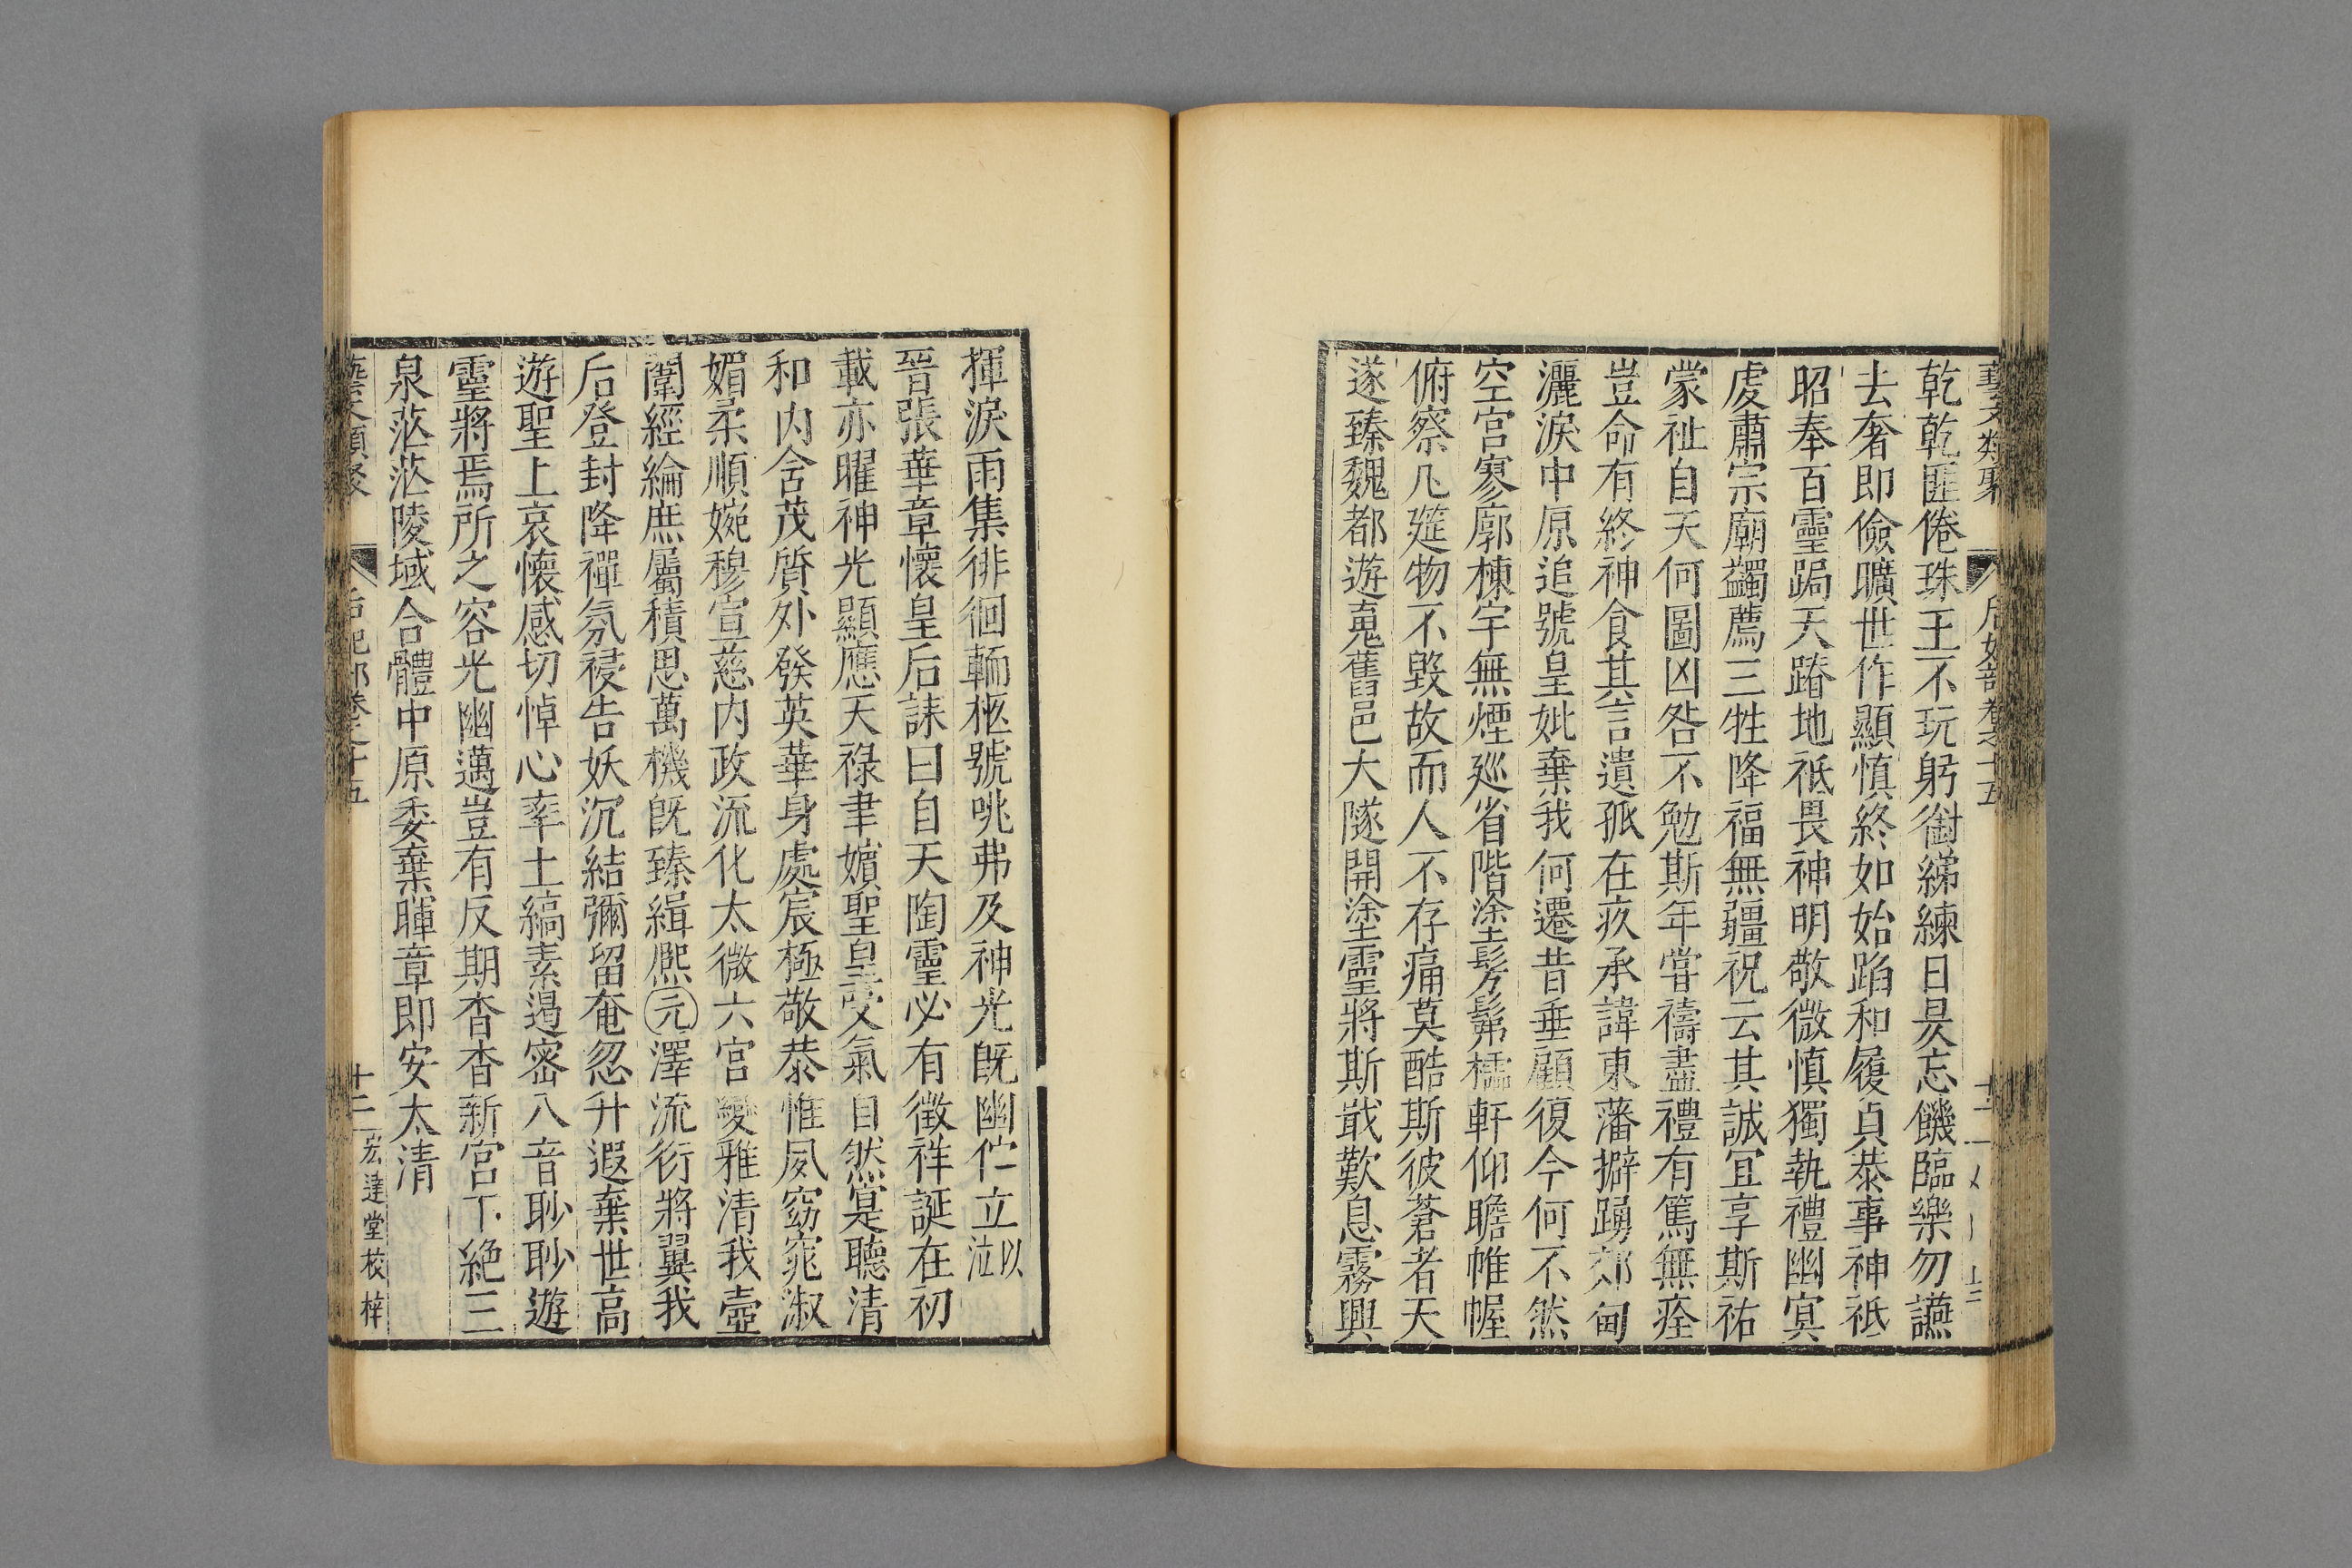 乾乾匪倦珠玉不玩躬御綈練日昃忘饑臨樂勿讌
去奢即儉曠世作顯慎終如始蹈和履貞恭事神祗
昭奉百靈跼天蹐地祗畏神明敬微慎獨執禮幽冥
虔肅宗廟蠲薦三牲降福無疆祝云其誠宜享斯祐
蒙祉自天何圖凶咎不勉斯年嘗禱盡禮有篤無痊
豈命有終神食其言遺孤在疚承諱東藩擗踴郊甸
灑淚中原追號皇妣棄我何遷昔垂顧復今何不然
空宮寥廓棟宇無煙廵省階塗髣髴櫺軒仰瞻帷幄
俯察几筵物不毀故而人不存痛莫酷斯彼蒼者天
遂臻魏都遊䰟舊邑大隧開塗靈將斯戢歎息霧興
揮淚雨集徘徊輀柩號咷弗及神光旣幽佇立以泣
晉張華章懷皇后誄曰自天陶靈必有徵祥誕在初
載亦曜神光顯應天祿聿嬪聖皇受氣自然寔聰清
和內含茂質外發英華身處宸極敬恭惟夙窈窕淑
媚柔順婉穆宣慈内政流化太微六宮變雅清我壼
闈經綸庶屬積思萬機旣臻緝熈元澤流衍將翼我
后登封降禪氛祲告妖沉結彌留奄忽升遐棄世高
遊聖上哀懷感切悼心率土縞素遏密八音眇眇遊
靈將焉所之容光幽邁豈有反期杳杳新宮下絶三
泉茫茫陵域合體中原委棄暉章即安太清
十二
宏達堂校梓